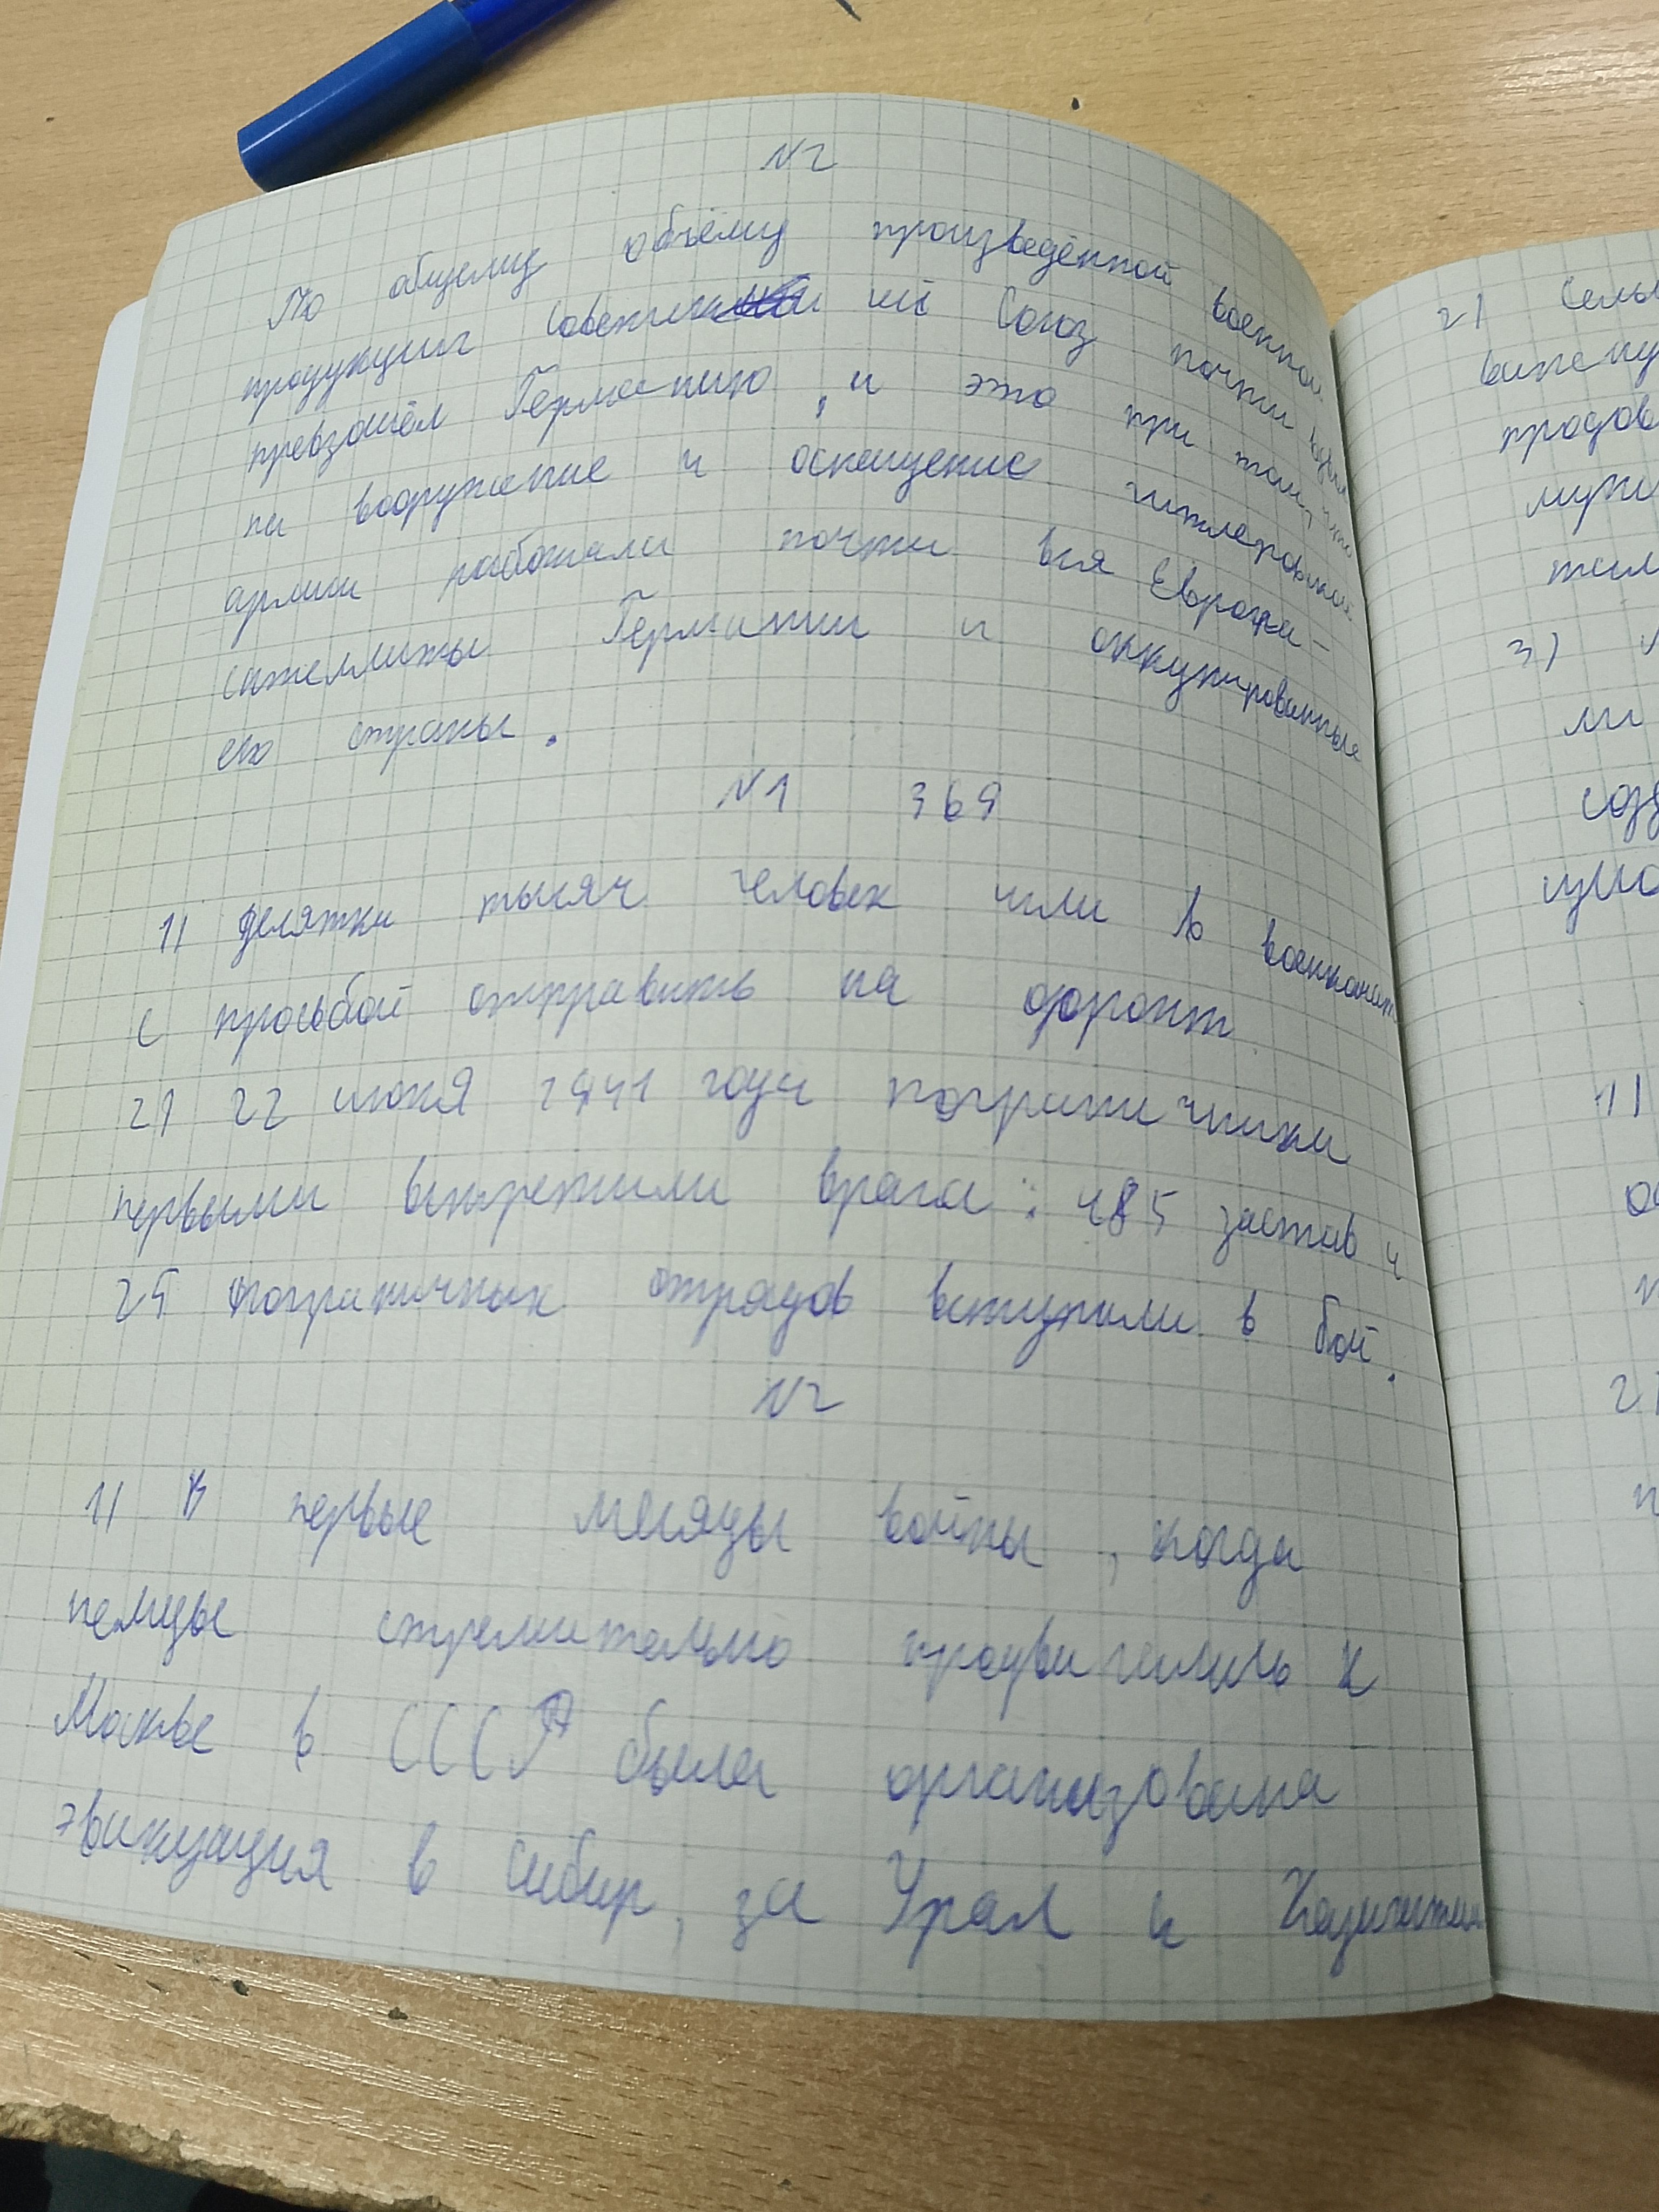 N2
По общему объёму произведённой военной
продукции Советский Союз почти вдвое
превзошёл Германию, и это при том, что
на вооружение и оснащение гитлеровской
армии работала почти вся Европа -
сателлиты Германии и оккупированные
ею страны.
N1 369
1) Десятки тысяч человек шли в военкомат
с просьбой отправить на фронт
2) 22 июня 1941 года пограничники
первыми встретили врага: 485 застав и
25 пограничных отрядов вступили в бой.
N2
1) В первые месяцы войны, когда
немцы стремительно продвигались к
Москве в СССР была организована
эвакуация в Сибирь, за Урал и Казахстан
2)
3)
ли
1)
2)